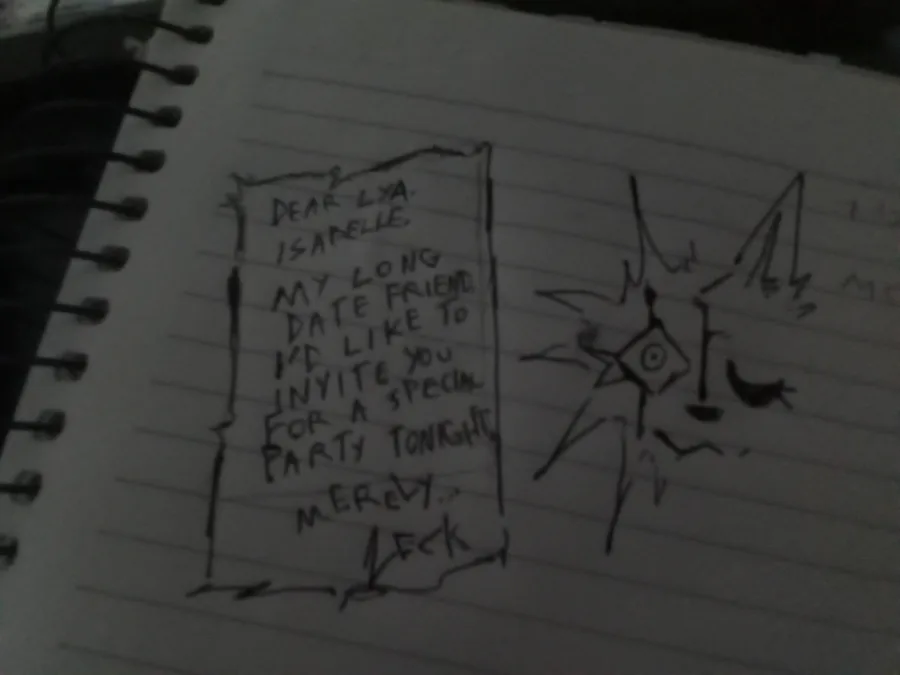 DEAR LYA.
ISABELLE
MY LONG
DATE FRIEND
I'D LIKE TO
INVITE YOU
FOR A SPECIAL
PARTY TONIGHT
MERELY...
LECK